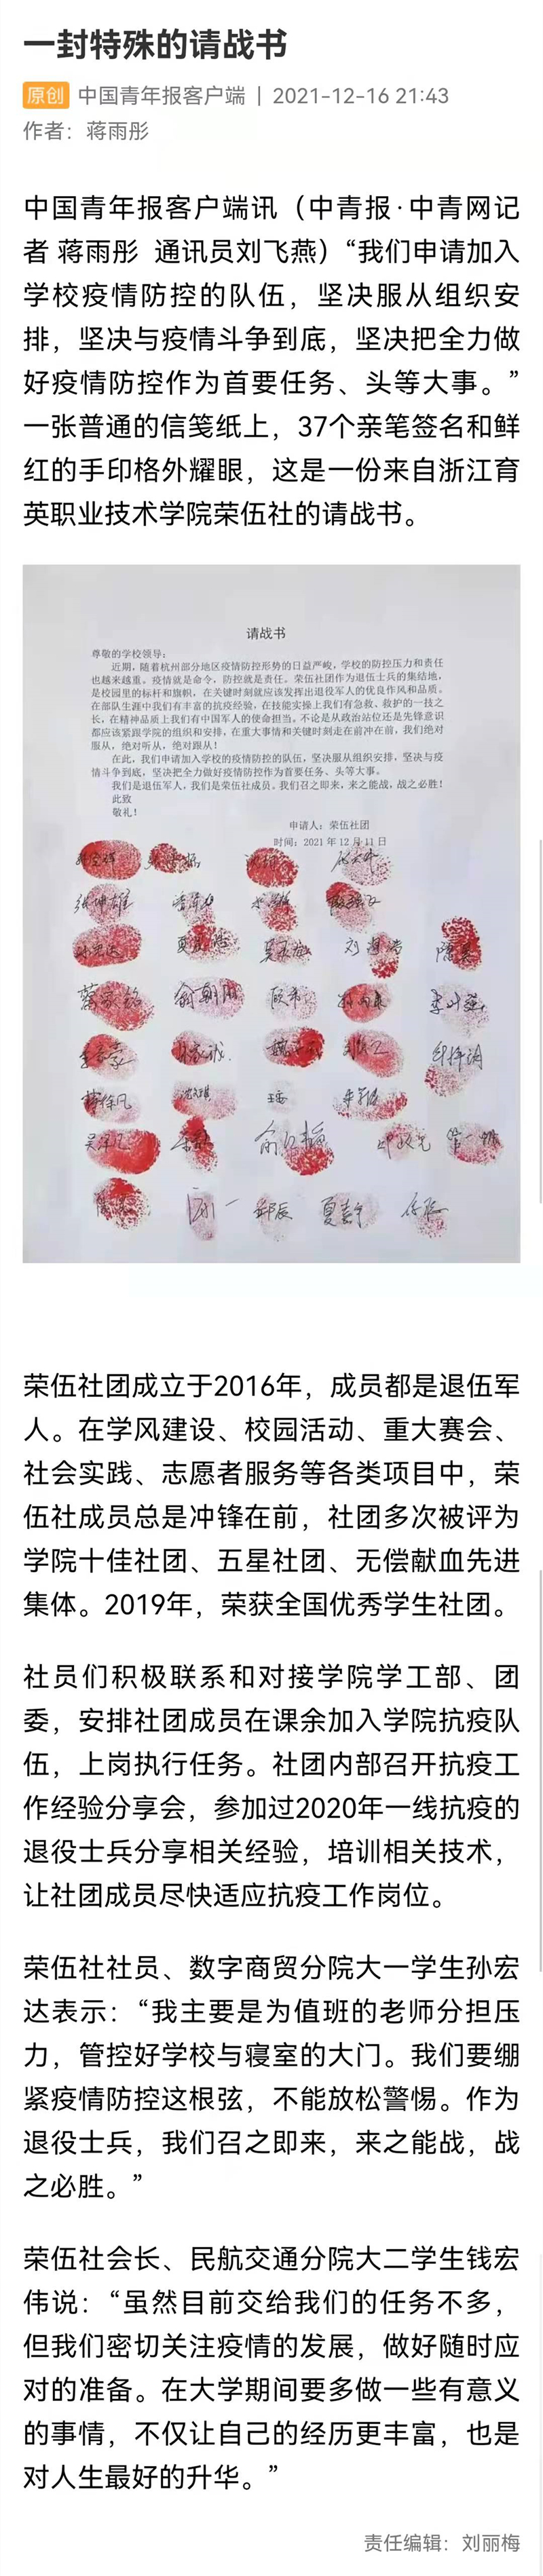 一封特殊的请战书
原创 中国青年报客户端 | 2021-12-16 21:43
作者：蒋雨彤
中国青年报客户端讯（中青报·中青网记
者 蒋雨彤 通讯员刘飞燕）“我们申请加入
学校疫情防控的队伍，坚决服从组织安
排，坚决与疫情斗争到底，坚决把全力做
好疫情防控作为首要任务、头等大事。”
一张普通的信笺纸上，37个亲笔签名和鲜
红的手印格外耀眼，这是一份来自浙江育
英职业技术学院荣伍社的请战书。
请战书
尊敬的学校领导：
近期，随着杭州部分地区疫情防控形势的日益严峻，学校的防控压力和责任
也越来越重。疫情就是命令，防控就是责任。荣伍社团作为退伍士兵的集结地，
是校园里的标杆和旗帜，在关键时刻就应该发挥出退役军人的优良作风和品质。
在部队生涯中我们有丰富的抗疫经验，在技能实操上我们有急救、救护的一技之
长，在精神品质上我们有中国军人的使命担当。不论是从政治站位还是先锋意识
都应该紧跟学院的组织和安排，在重大事情和关键时刻走在前冲在前，我们绝对
服从，绝对听从，绝对跟从！
在此，我们申请加入学校的疫情防控的队伍，坚决服从组织安排，坚决与疫
情斗争到底，坚决把全力做好疫情防控作为首要任务、头等大事。
我们是退伍军人，我们是荣伍社成员。我们召之即来，来之能战，战之必胜！
此致
敬礼！
申请人：荣伍社团
时间：2021 年 12 月 11 日
张坤雄
俞朝阳
邱辰 夏嘉宇
荣伍社团成立于2016年，成员都是退伍军
人。在学风建设、校园活动、重大赛会、
社会实践、志愿者服务等各类项目中，荣
伍社成员总是冲锋在前，社团多次被评为
学院十佳社团、五星社团、无偿献血先进
集体。2019年，荣获全国优秀学生社团。
社员们积极联系和对接学院学工部、团
委，安排社团成员在课余加入学院抗疫队
伍，上岗执行任务。社团内部召开抗疫工
作经验分享会，参加过2020年一线抗疫的
退役士兵分享相关经验，培训相关技术，
让社团成员尽快适应抗疫工作岗位。
荣伍社社员、数字商贸分院大一学生孙宏
达表示：“我主要是为值班的老师分担压
力，管控好学校与寝室的大门。我们要绷
紧疫情防控这根弦，不能放松警惕。作为
退役士兵，我们召之即来，来之能战，战
之必胜。”
荣伍社会长、民航交通分院大二学生钱宏
伟说：“虽然目前交给我们的任务不多，
但我们密切关注疫情的发展，做好随时应
对的准备。在大学期间要多做一些有意义
的事情，不仅让自己的经历更丰富，也是
对人生最好的升华。”
责任编辑：刘丽梅